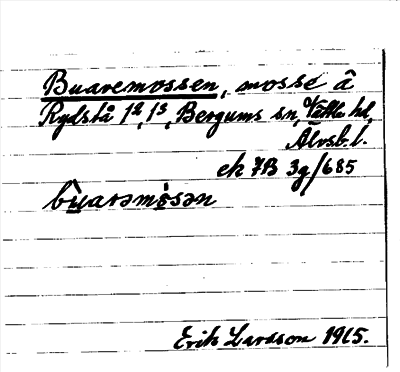 Buaremossen, mosse å
Rydstå 1², 1³, Bergums sn, Vättle hd,
Älvsb. l.
ek 7B 3g/685
bu̲arəmo̲sən
Erik Larsson 1915.